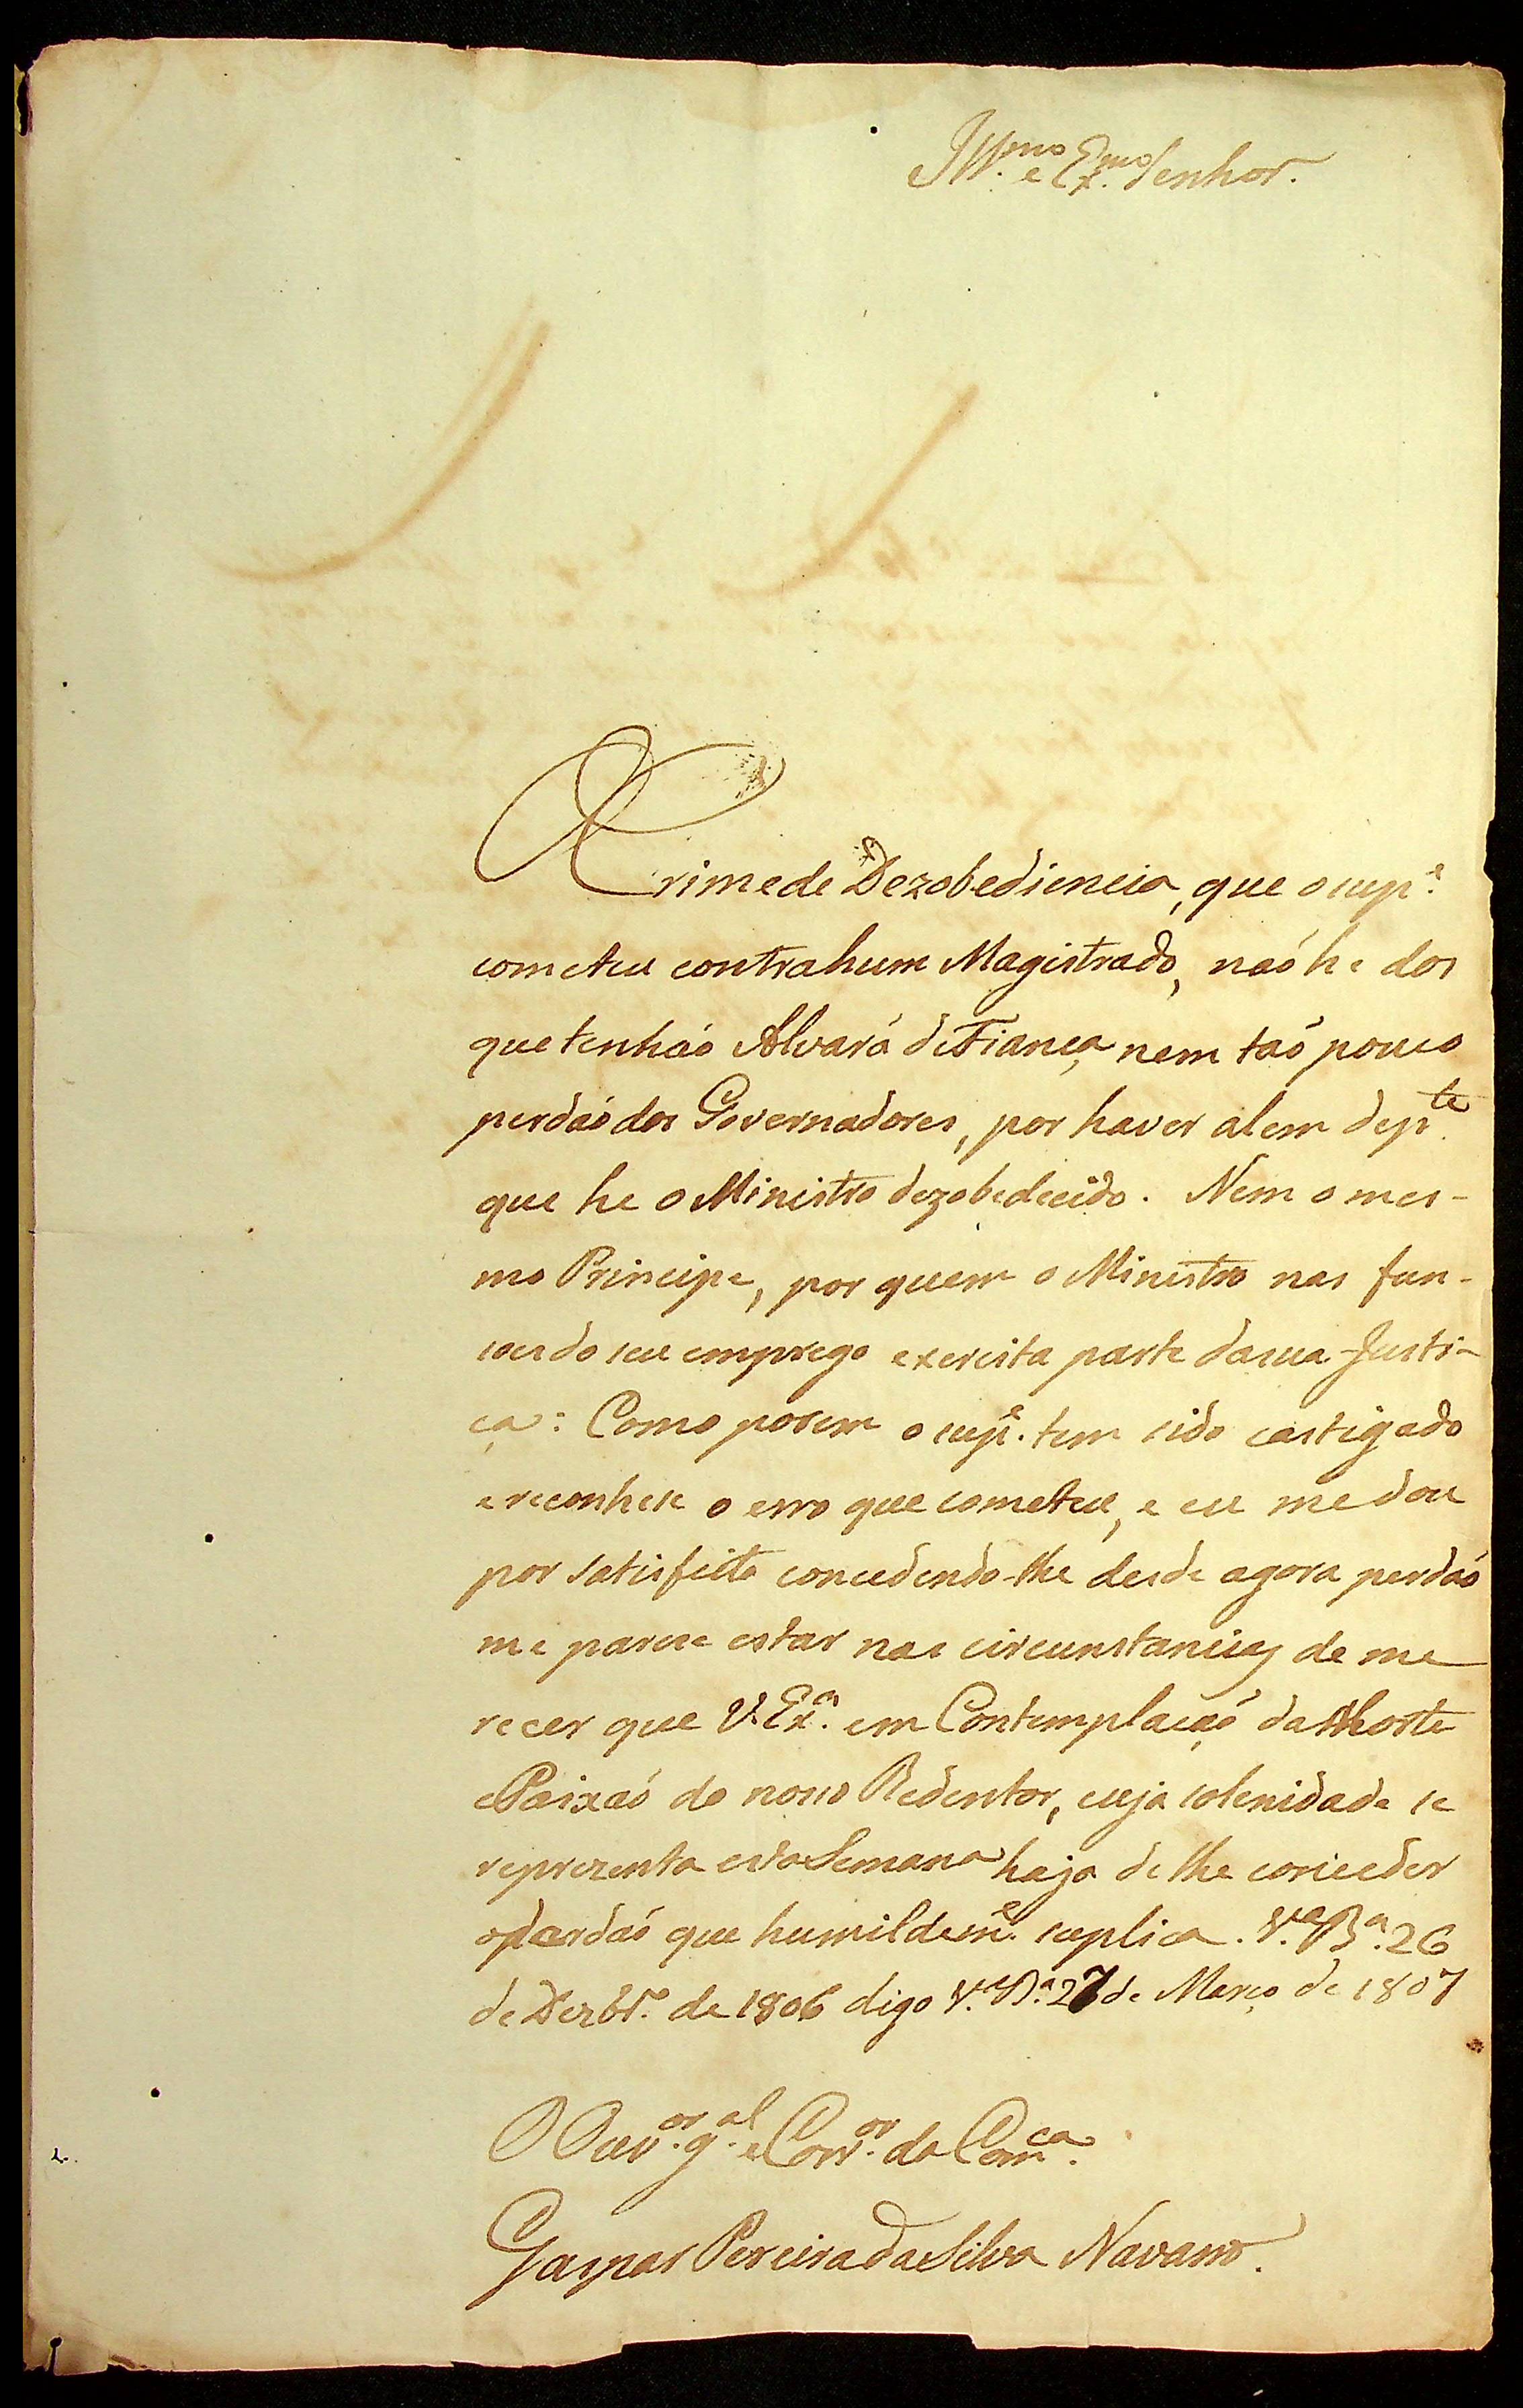 Ill.mo e Ex.mo Senhor.
Crime de Dezobediencia, que o sup.e
cometeu contra hum Magistrado, naó he dos
que tenhaó Alvará de Fiança nem taó pouco
perdaó dos Governadores, por haver alem de p.te
que he o Ministro dezobedecido. Nem o mes-
mo Principe, por quem o Ministro nas fun-
soens do seu emprego exercita parte da sua Justi-
ça: Como porem o sup.e tem sido castigado
e reconhese o erro que cometeu, e eu me dou
por satisfeito concedendo-lhe desde agora perdaó
me parese estar nas circunstancias de me
recer que V. Ex.a em Contemplaçaó da Morte
e Paixaó do nosso Redentor, cuja solenidade se
reprezenta esta Semana haja de lhe conceder
o perdaó que humildem.e suplica. V.a B.a 26
de Dezbr.o de 1806 digo V.a B.a 27 de Março de 1807
O Ouv.or g.al e Corr.or da Com.ca
Gaspar Pereira da Silva Navarro.